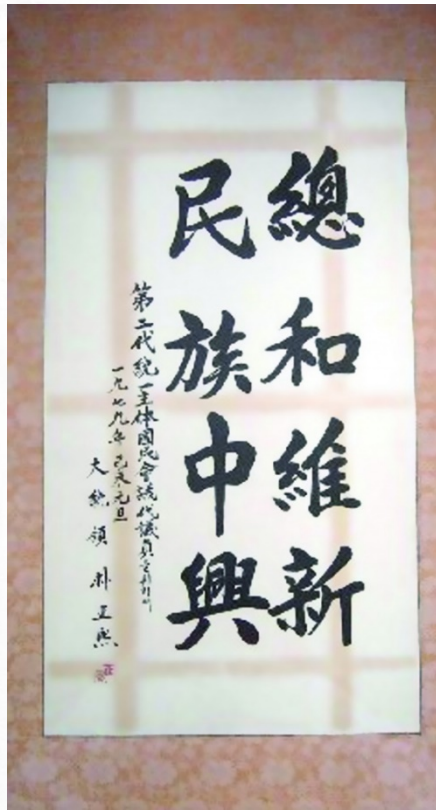 總和維新
民族中興
第二代 統一主体國民會議代議員
一九七九年 己未元旦
大統領 朴正熙